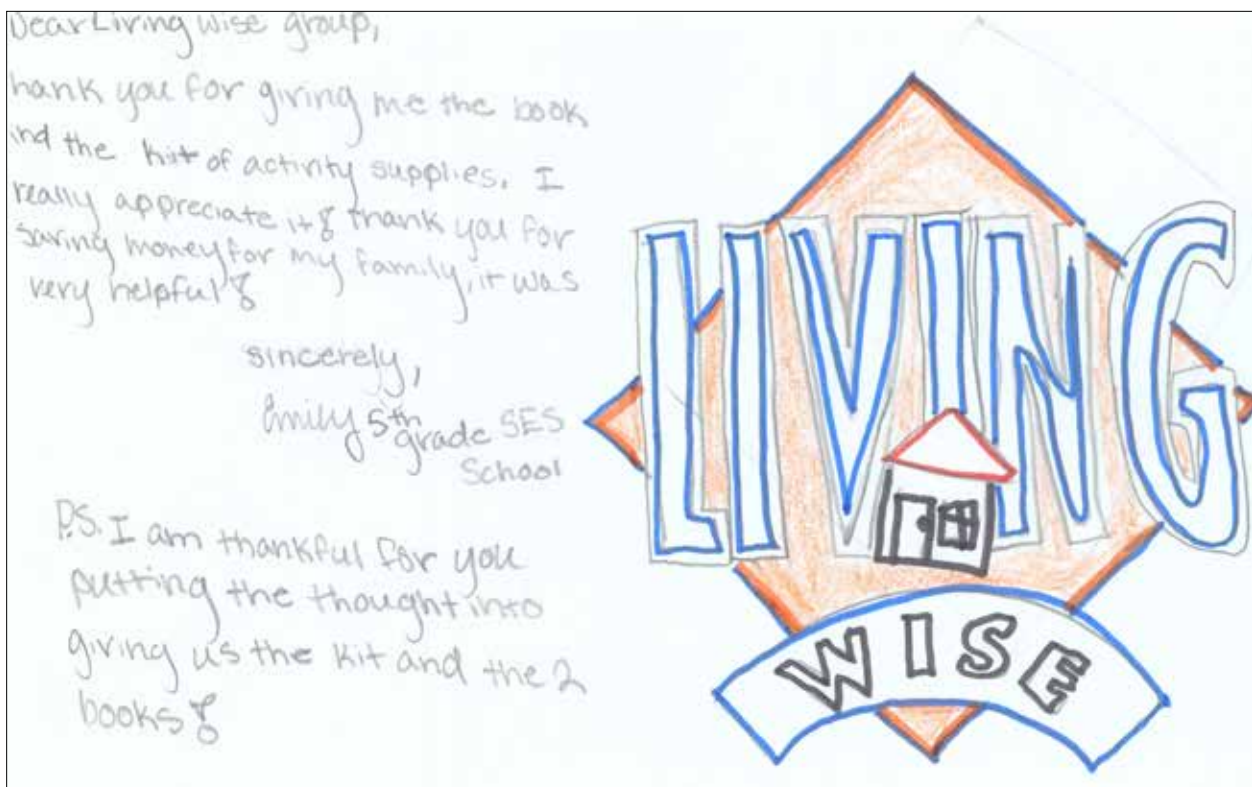 Dear Living wise group,
hank you for giving me the book
ind the kit of activity supplies. I
really appreciate it! thank you for
saving money for my family, it was
very helpful!
sincerely,
Emily 5th grade SES
School
P.S. I am thankful for you
putting the thought into
giving us the kit and the 2
books!
LIVING
WISE